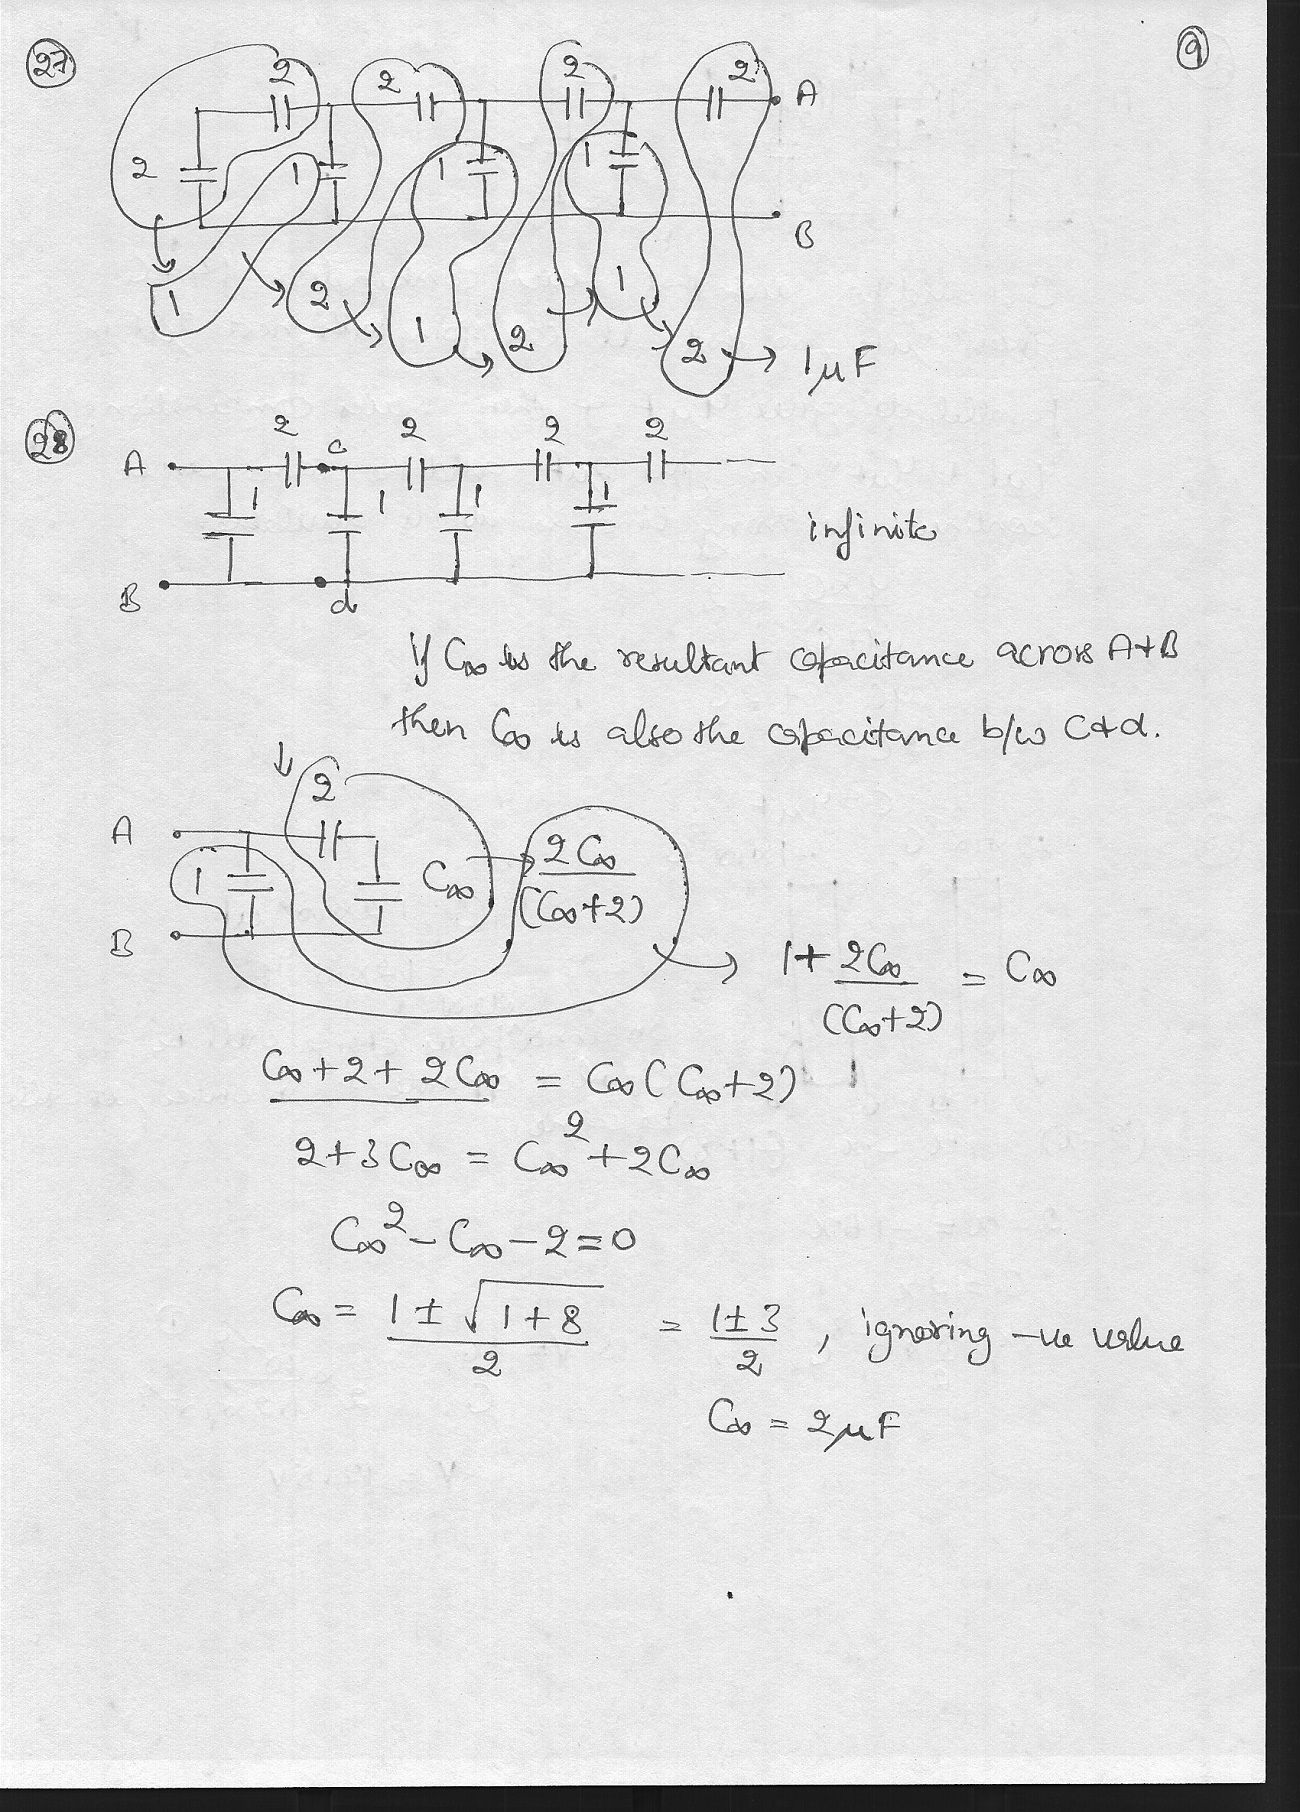 27 9
2 2 2 2 A
2 1 1 1
B
1 2 1 2 1 2 1μF
28
A 2 c 2 2 2
1 1 1 1
infinite
B d
If C∞ is the resultant capacitance across A+B
then C∞ is also the capacitance b/w C+d.
A 2
1 C∞ 2C∞/(C∞+2)
B
1+ 2C∞/(C∞+2) = C∞
C∞+2+2C∞ = C∞(C∞+2)
2+3C∞ = C∞²+2C∞
C∞²-C∞-2=0
C∞ = 1±√1+8/2 = 1±3/2 , ignoring -ve value
C∞ = 2μF